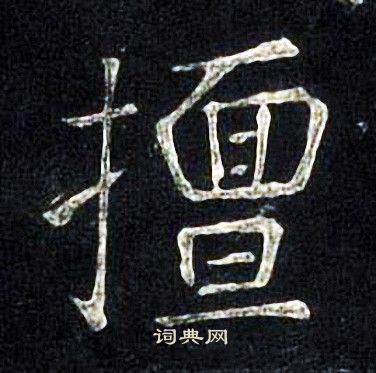 擅
词典网